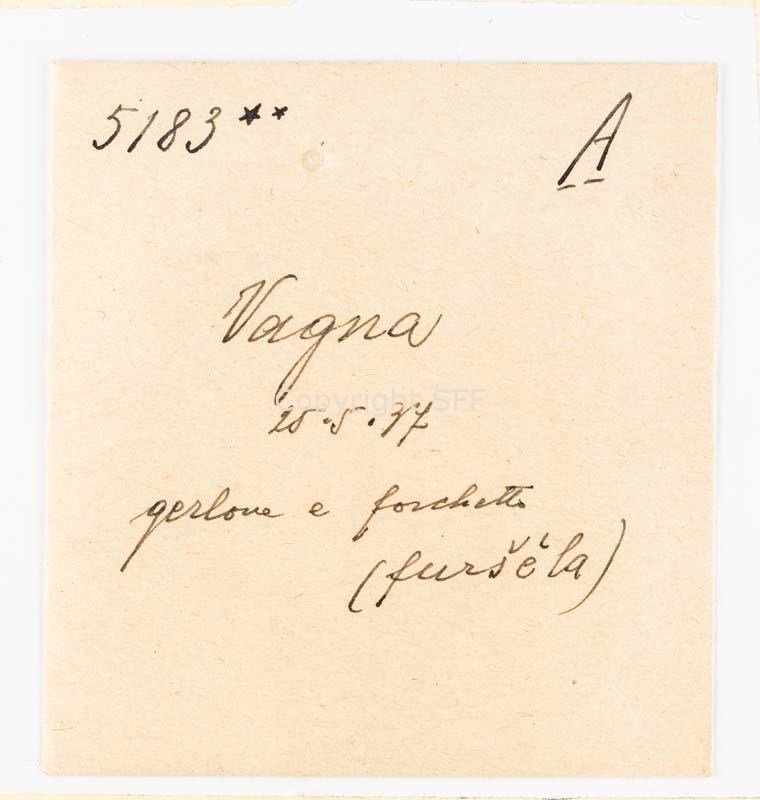 5183** A
Vagna
copyright SFF
25.5.37
gerlone e forchetta
(furšèla)